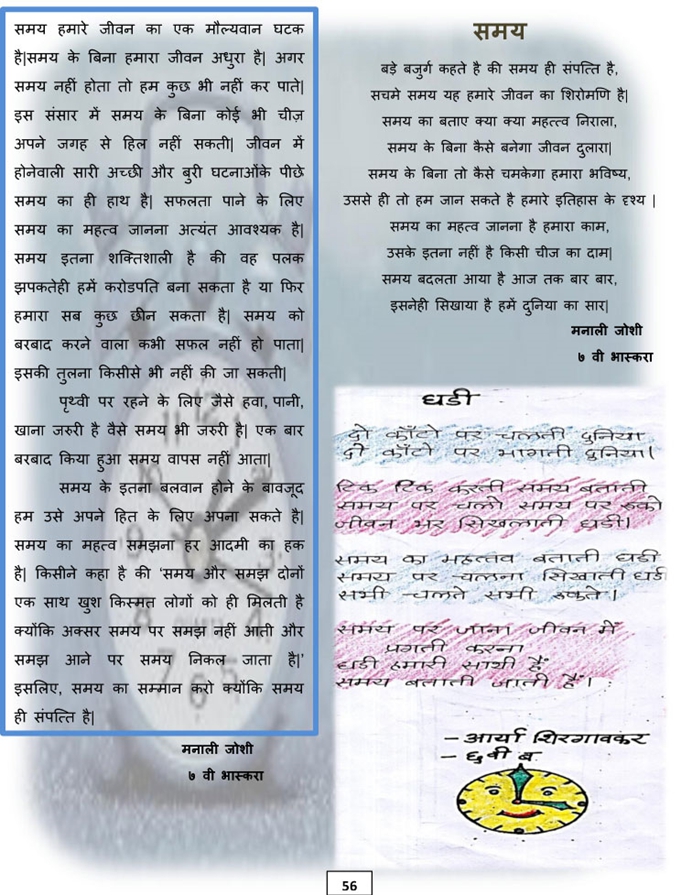 समय हमारे जीवन का एक मौल्यवान घटक
है|समय के बिना हमारा जीवन अधुरा है| अगर
समय नहीं होता तो हम कुछ भी नहीं कर पाते|
इस संसार में समय के बिना कोई भी चीज़
अपने जगह से हिल नहीं सकती| जीवन में
होनेवाली सारी अच्छी और बुरी घटनाओंके पीछे
समय का ही हाथ है| सफलता पाने के लिए
समय का महत्व जानना अत्यंत आवश्यक है|
समय इतना शक्तिशाली है की वह पलक
झपकतेही हमें करोडपति बना सकता है या फिर
हमारा सब कुछ छीन सकता है| समय को
बरबाद करने वाला कभी सफल नहीं हो पाता|
इसकी तुलना किसीसे भी नहीं की जा सकती|
पृथ्वी पर रहने के लिए जैसे हवा, पानी,
खाना जरुरी है वैसे समय भी जरुरी है| एक बार
बरबाद किया हुआ समय वापस नहीं आता|
समय के इतना बलवान होने के बावजूद
हम उसे अपने हित के लिए अपना सकते है|
समय का महत्व समझना हर आदमी का हक
है| किसीने कहा है की 'समय और समझ दोनों
एक साथ खुश किस्मत लोगों को ही मिलती है
क्योंकि अक्सर समय पर समझ नहीं आती और
समझ आने पर समय निकल जाता है|'
इसलिए, समय का सम्मान करो क्योंकि समय
ही संपत्ति है|
मनाली जोशी
७ वी भास्करा
समय
बड़े बजुर्ग कहते है की समय ही संपत्ति है,
सचमे समय यह हमारे जीवन का शिरोमणि है|
समय का बताए क्या क्या महत्त्व निराला,
समय के बिना कैसे बनेगा जीवन दुलारा|
समय के बिना तो कैसे चमकेगा हमारा भविष्य,
उससे ही तो हम जान सकते है हमारे इतिहास के दृश्य |
समय का महत्व जानना है हमारा काम,
उसके इतना नहीं है किसी चीज का दाम|
समय बदलता आया है आज तक बार बार,
इसनेही सिखाया है हमें दुनिया का सार|
मनाली जोशी
७ वी भास्करा
घडी
दो काँटो पर चलती दुनिया
दो काँटो पर भागती दुनिया।
टिक टिक करती समय बताती
समय पर चलो समय पर रुको
जीवन भर सिखलाती घडी।
समय का महत्तव बताती घडी
समय पर चलना सिखाती घडी
सभी चलते सभी रुकते।
समय पर जाना जीवन में
प्रगती करना
घडी हमारी साथी है
समय बताती जाती हैं।
- आर्या शिरगावकर
- ६वी ब
56